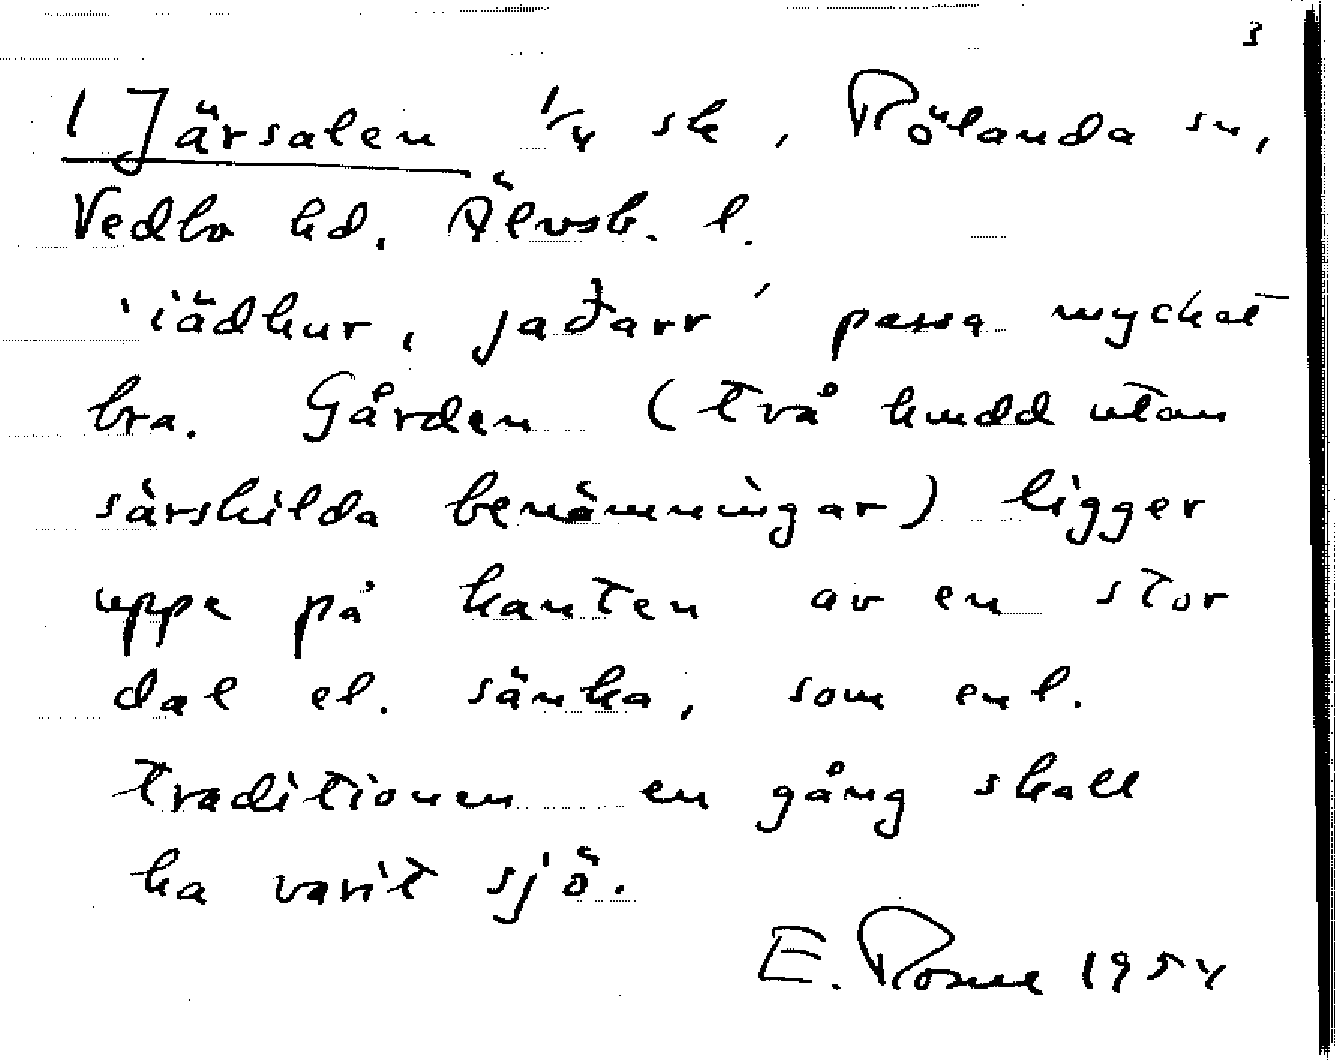 3
1 Järsalen 1/4 sk, Rölanda sn,
Vedbo hd. Älvsb. l.
'iädhur, jaðarr' passa mycket
bra. Gården (två hmdd utan
särskilda benämningar) ligger
uppe på kanten av en stor
dal el. sänka, som enl.
traditionen en gång skall
ha varit sjö.
E. Rosell 1954